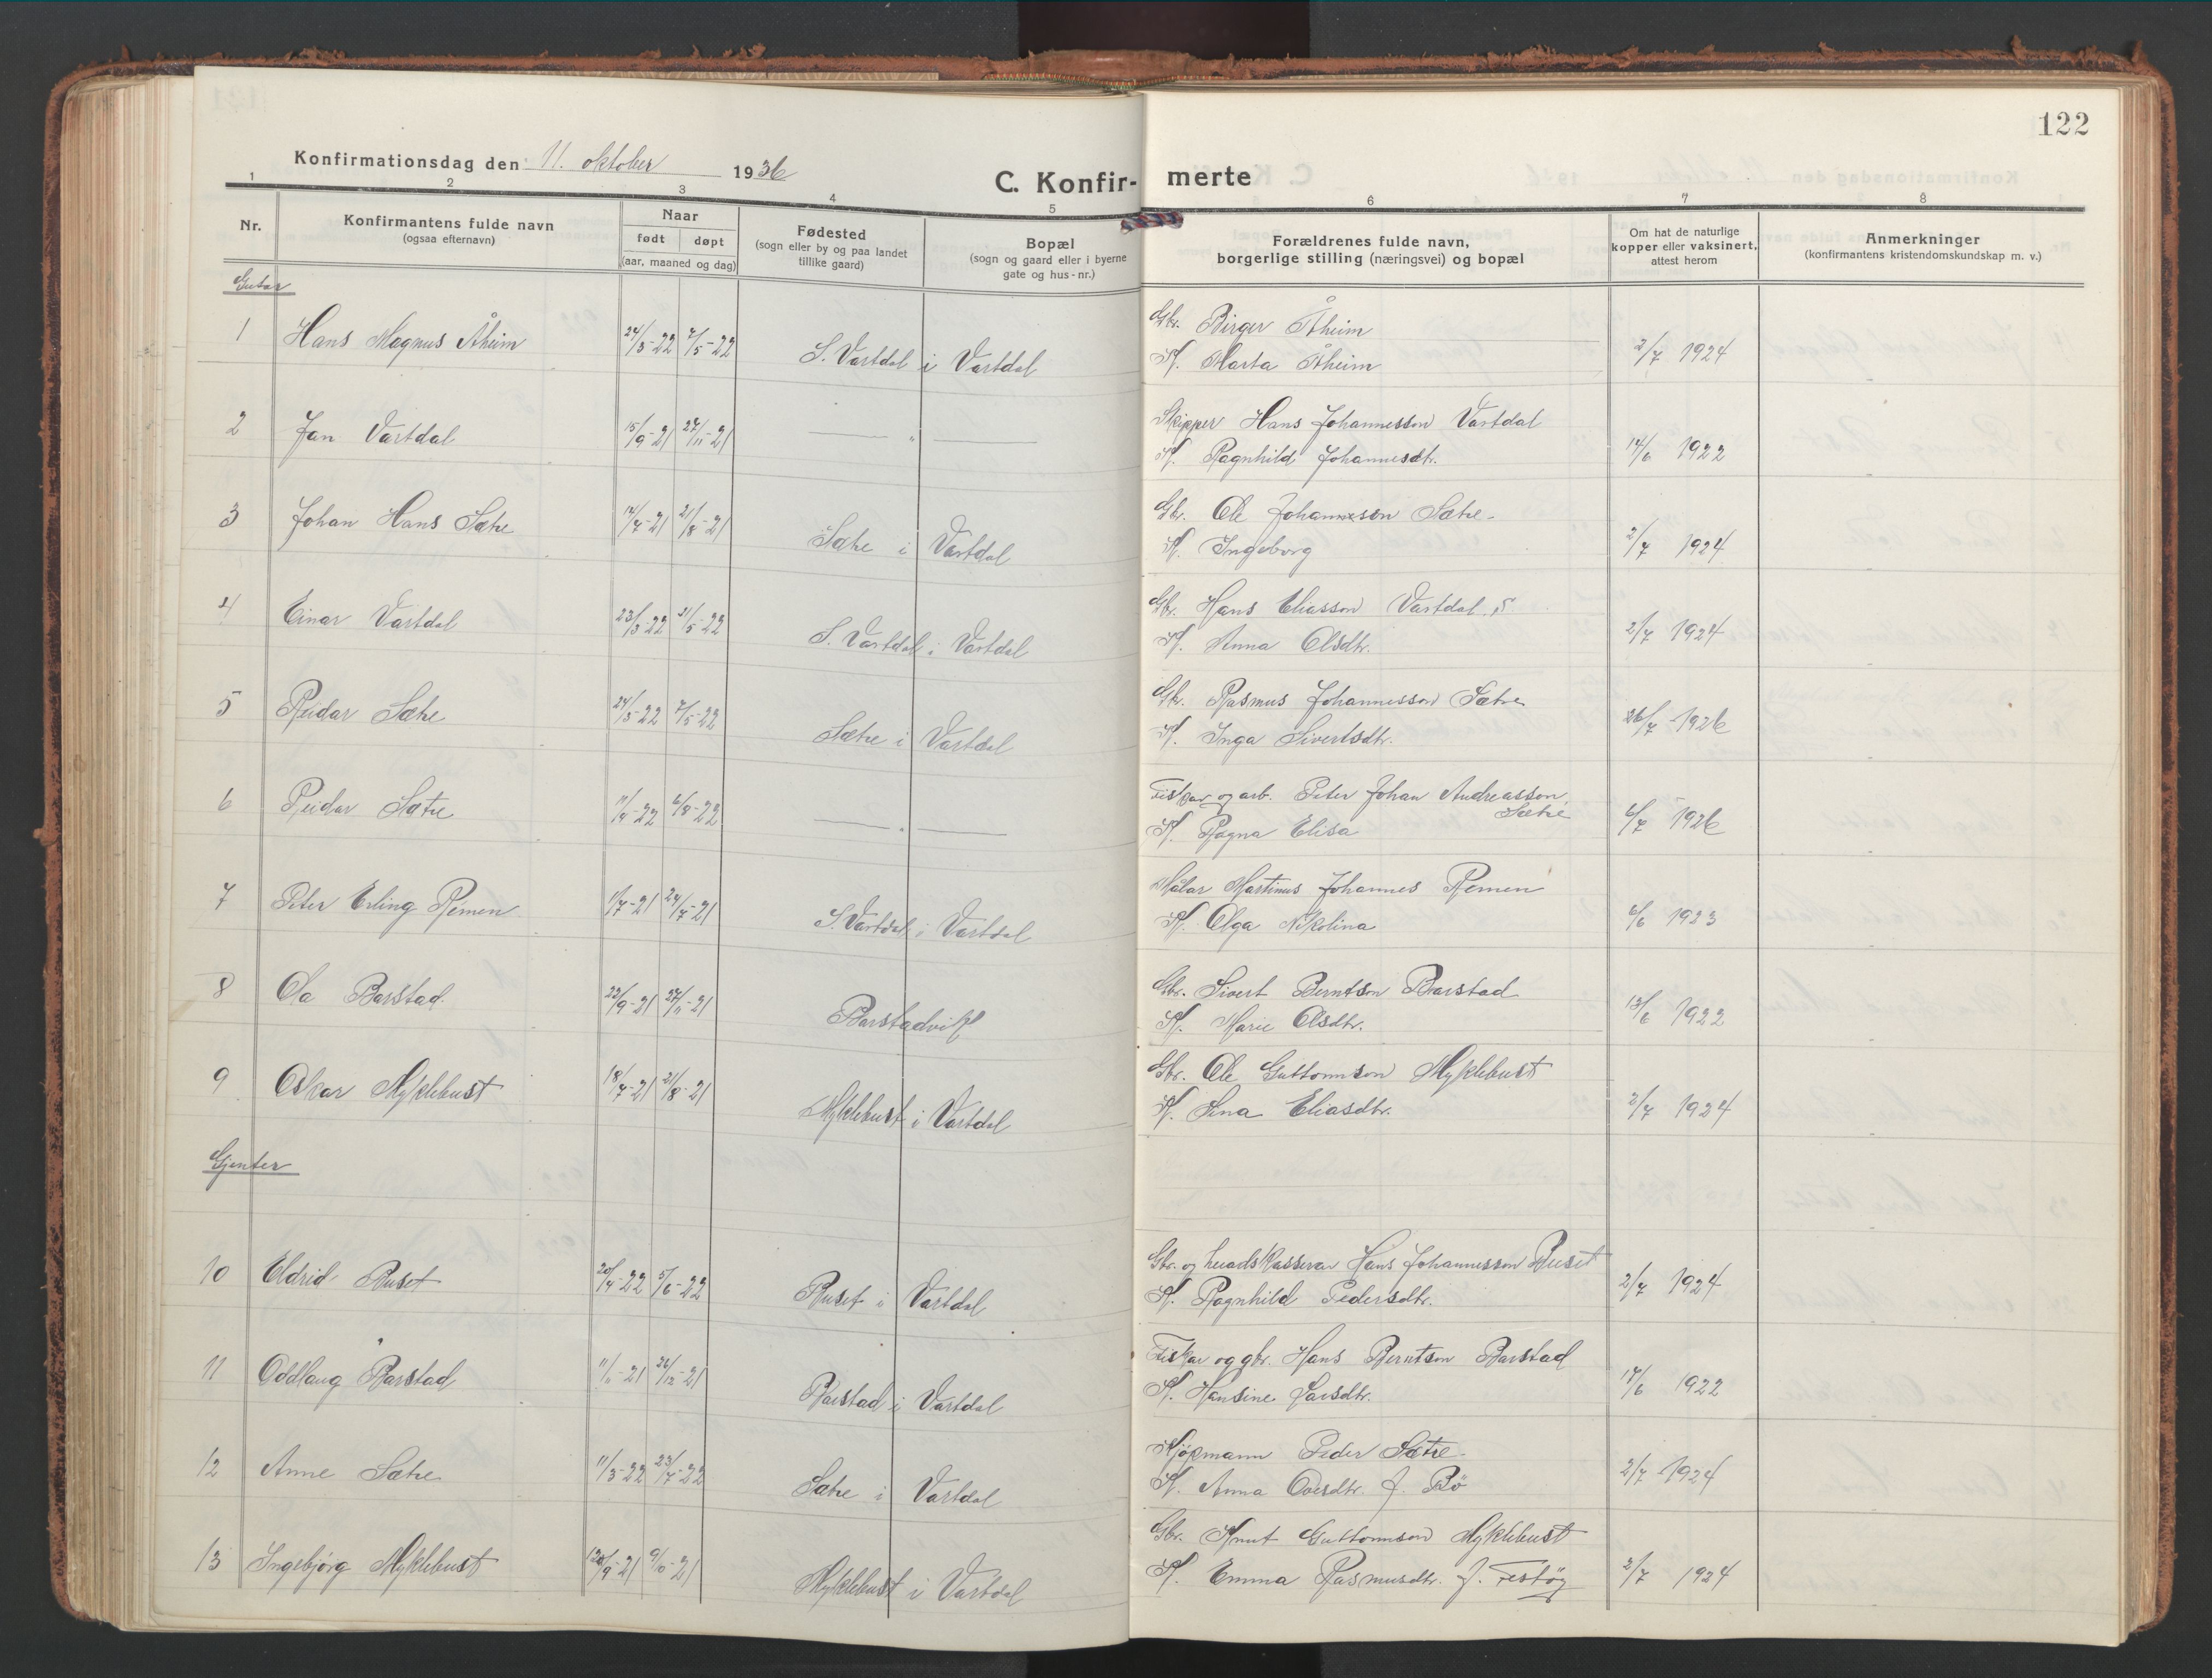 122
Konfirmationsdag den 11. oktober 1936
C. Konfirmerte
1 2 3 4 5 6 7 8
Nr.
Konfirmantens fulde navn
(ogsaa efternavn)
Naar
født døpt
(aar, maaned og dag)
Fødested
(sogn eller by og paa landet
tillike gaard)
Bopæl
(sogn og gaard eller i byerne
gate og hus-nr.)
Forældrenes fulde navn,
borgerlige stilling (næringsvei) og bopæl
Om hat de naturlige
kopper eller vaksinert,
attest herom
Anmerkninger
(konfirmantens kristendomskundskap m. v.)
Gutar
1 Hans Magnus Åheim 24/3-22 7/5-22 S. Vartdal i Vartdal Gbr. Birger Åheim
K. Marta Åheim 2/7 1924
2 Jan Vartdal 15/9-21 27/11-21 — „ — Skipper Hans Johannesson Vartdal
K. Ragnhild Johannesdtr. 14/6 1922
3 Johan Hans Sætre 14/7-21 21/8-21 Sætre i Vartdal Gbr. Ole Johannesson Sætre
K. Ingeborg 2/7 1924
4 Einar Vartdal 23/3-22 21/5-22 S. Vartdal i Vartdal Gbr. Hans Eliasson Vartdal s
K. Anna Olsdtr. 2/7 1924
5 Reidar Sætre 24/3-22 7/5-22 Sætre i Vartdal Gbr. Rasmus Johannesson Sætre
K. Inga Sivertsdtr. 26/7-1926
6 Reidar Sætre 11/4-22 6/8-22 — „ — Fiskar og arb. Peter Johan Andreasson
Sætre
K. Ragna Elisa 6/7 1926
7 Peter Erling Remen 1/7-21 24/7-21 S. Vartdal i Vartdal Målar Martinus Johannes Remen
K. Olga Nikolina 6/6 1923
8 Ola Barstad 22/9-21 27/11-21 Barstadvik Gbr. Sivert Berntson Barstad
K. Marie Olsdtr. 13/6 1922
9 Oskar Myklebust 18/7-21 21/8-21 Myklebust i Vartdal Gbr. Ole Guttormson Myklebust
K. Lina Eliasdtr. 2/7 1924
Gjenter
10 Eldrid Ruset 20/4-22 5/6-22 Ruset i Vartdal Gbr. og heradskasserar Hans Johannesson Ruset
K. Ragnhild Pedersdtr. 2/7 1924
11 Oddlaug Barstad 11/11-21 26/12-21 Barstad i Vartdal Fiskar og gbr. Hans Berntson Barstad
K. Hansine Larsdtr. 14/6 1922
12 Anne Sætre 11/3-22 23/7-22 Sætre i Vartdal Kjøpmann Peder Sætre
K. Anna Ovesdtr. f. Bö 2/7-1924
13 Ingebjørg Myklebust 9-21 9/10-21 Myklebust i Vartdal Gbr. Knut Guttormson Myklebust
K. Emma Rasmusdtr. f. Festöy 2/7 1924